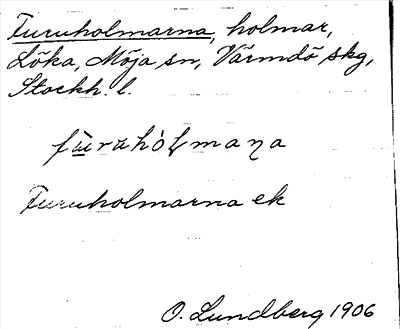 Furuholmarna, holmar,
Löka, Möja sn, Värmdö skg,
Stockh. l.
Furuholmarna ek
O. Lundberg 1906